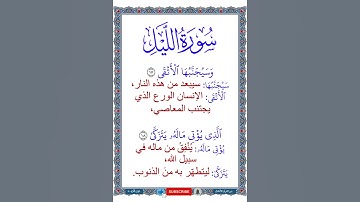 سُورَةُ اللَّيْلِ
وَسَيُجَنَّبُهَا ٱلْأَتْقَى ١٧
سَيُجَنَّبُهَا: سيبعد من هذه النار،
ٱلْأَتْقَى: الإنسان الورع الذي
يجتنب المعاصي،
ٱلَّذِى يُؤْتِى مَالَهُۥ يَتَزَكَّىٰ ١٨
يُؤْتِى مَالَهُۥ: يُنْفِقُ من ماله في
سبيل الله،
يَتَزَكَّىٰ: ليتطهّر به من الذنوب.
SUBSCRIBE